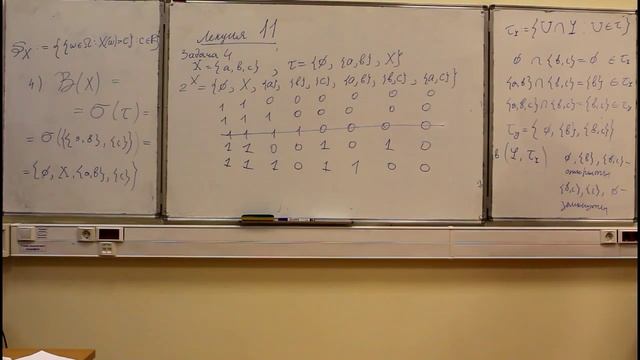 𝔖_X := {{ω∈Ω: X(ω)>c}: c∈ℝ}
4) B(X) =
= σ(τ) =
= σ({{a,b}, {c}}) =
= {ø, X, {a,b}, {c}}
Лекция 11
Задача 4
X={a,b,c}, τ={ø, {a,b}, X}
2^X = {ø, X, {a}, {b}, {c}, {a,b}, {b,c}, {a,c}}
1 1 0 0 0 0 0 0
1 1 1 0 0 0 0 0
1 1 1 1 0 0 0 0
1 1 0 0 1 0 1 0
1 1 1 0 1 1 0 0
ø ∩ {b,c} = ø ∈ τ
{a,b} ∩ {b,c} = {b} ∈ τ
{a,b,c} ∩ {b,c} = {b,c} ∈ τ
τ_y = {ø, {b}, {b,c}}
ø, {b}, {b,c} -
открыты
{b,c}, {c}, ø -
замкнуты